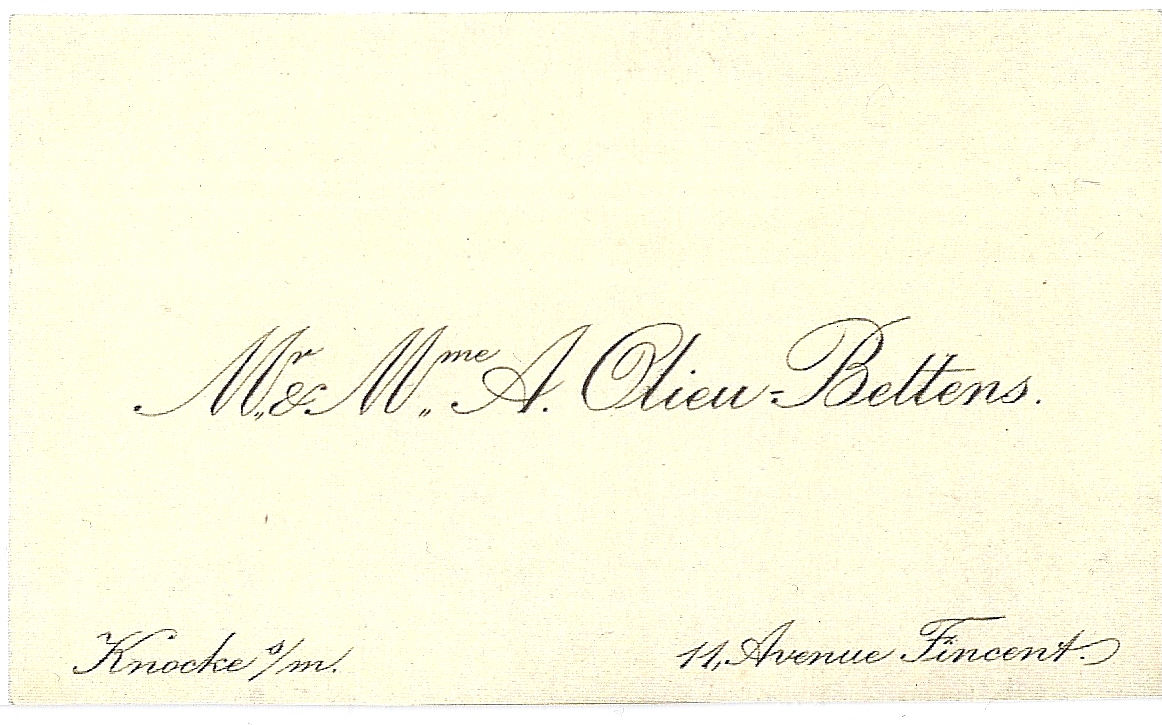 Mr. & Mme. A. Olieu-Beltens.
Knocke s/m.
11, Avenue Fincent.